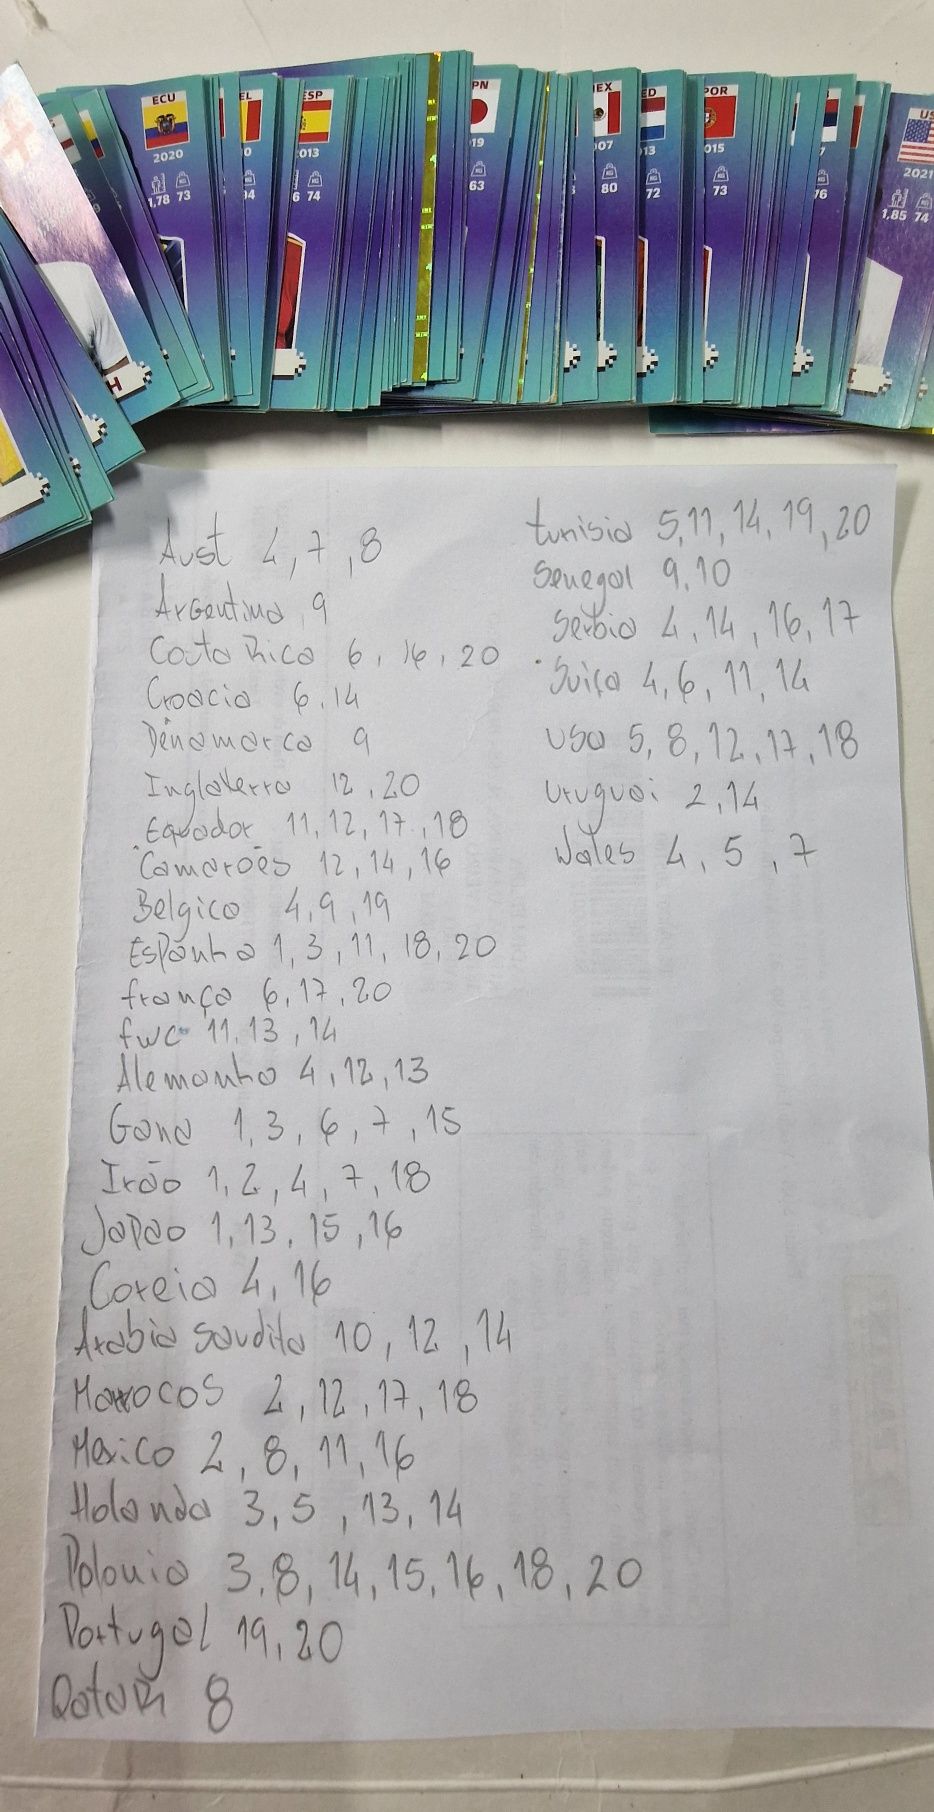 ECU
EL
ESP
PN
EX
ED
POR
US
2020
0
013
19
07
13
015
7
2021
1,78 73
34
6 74
63
80
72
73
76
1,85 74
H
Aust 4, 7, 8
Argentina, 9
Costa Rica 6, 16, 20
Croacia 6, 14
Dênamarca 9
Inglaterra 12, 20
Equador 11, 12, 17, 18
Camarões 12, 14, 16
Belgica 4, 9, 19
Espanha 1, 3, 11, 18, 20
frança 6, 17, 20
fwc 11, 13, 14
Alemanha 4, 12, 13
Gana 1, 3, 6, 7, 15
Irão 1, 2, 4, 7, 18
Japao 1, 13, 15, 16
Coreia 4, 16
Arabia Saudita 10, 12, 14
Marrocos 2, 12, 17, 18
Mexico 2, 8, 11, 16
Holanda 3, 5, 13, 14
Polonia 3, 8, 14, 15, 16, 18, 20
Portugal 19, 20
Qatar 8
tunisia 5, 11, 14, 19, 20
Senegal 9, 10
Serbia 4, 14, 16, 17
Suiça 4, 6, 11, 14
USa 5, 8, 12, 17, 18
Uruguai 2, 14
Wales 4, 5, 7